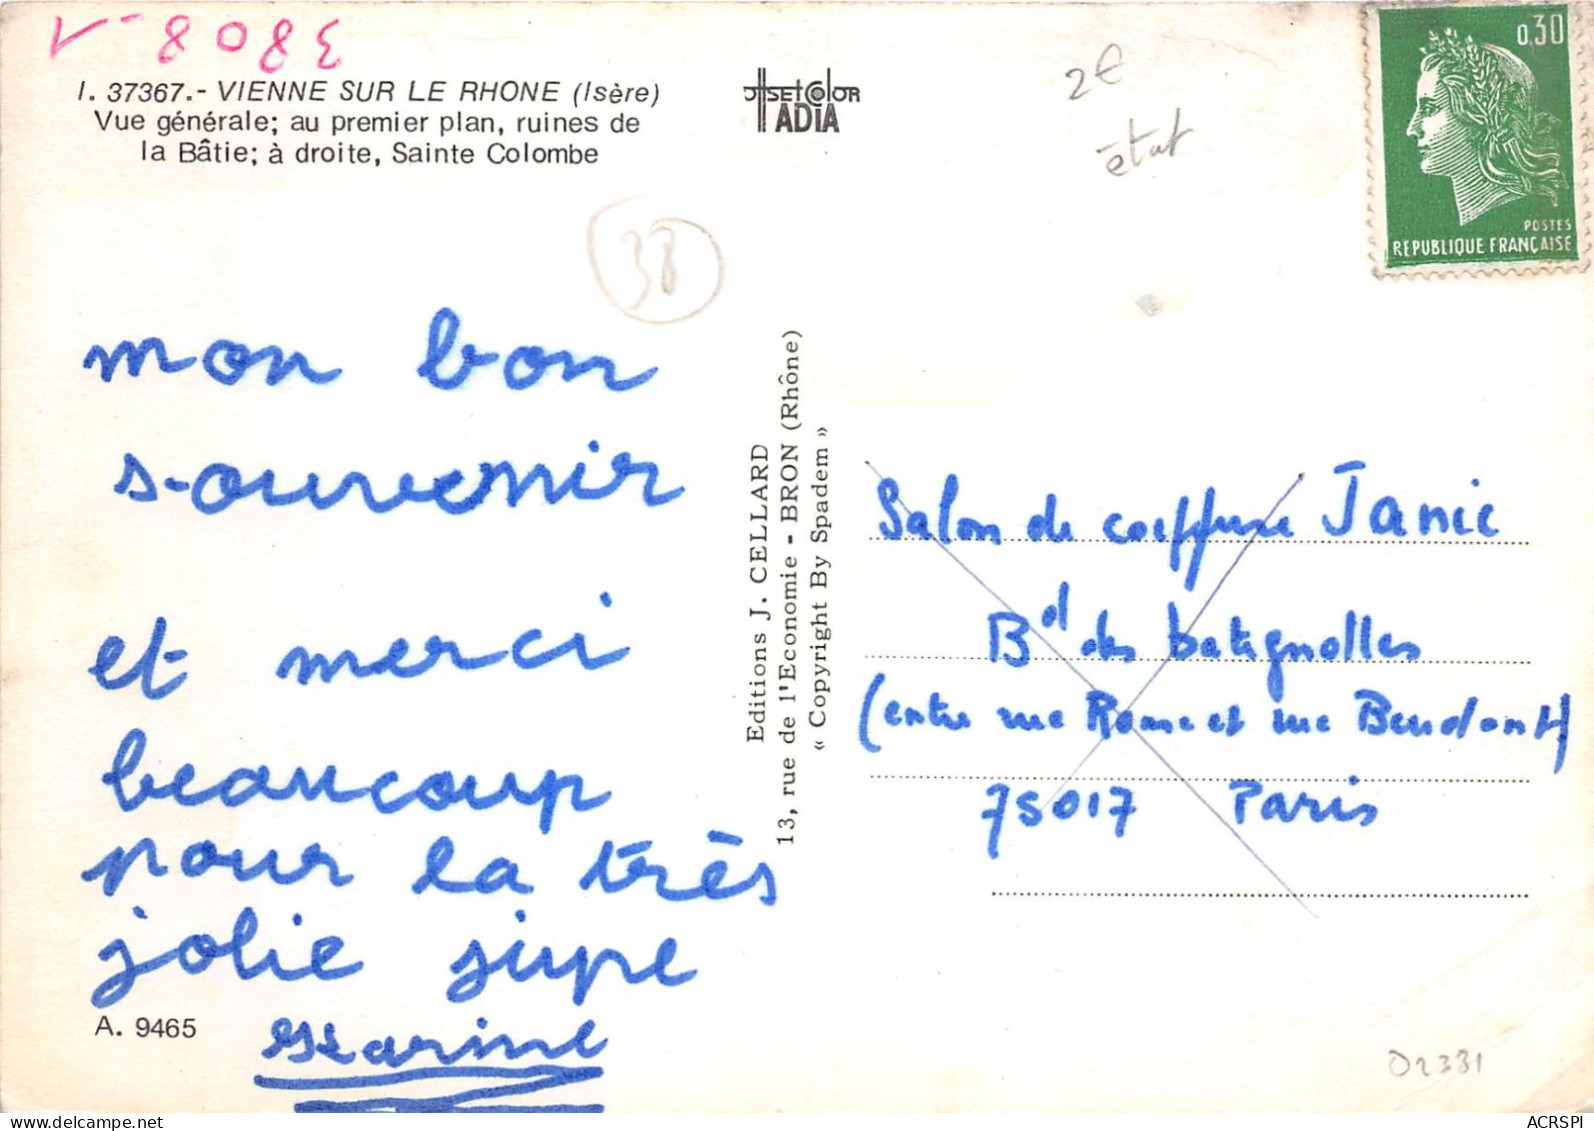 V-8083
I. 37367.- VIENNE SUR LE RHONE (Isère)
Vue générale; au premier plan, ruines de
la Bâtie; à droite, Sainte Colombe
offset color
ADIA
2€
état
0,30
POSTES
REPUBLIQUE FRANÇAISE
38
mon bon
souvenir
et merci
beaucoup
pour la très
jolie jupe
Karine
A. 9465
Editions J. CELLARD
13, rue de l'Economie - BRON (Rhône)
« Copyright By Spadem »
Salon de coiffure Janic
Bd des batignolles
(entre rue Rome et rue Beudant)
75017 Paris
02331
ACRSPI